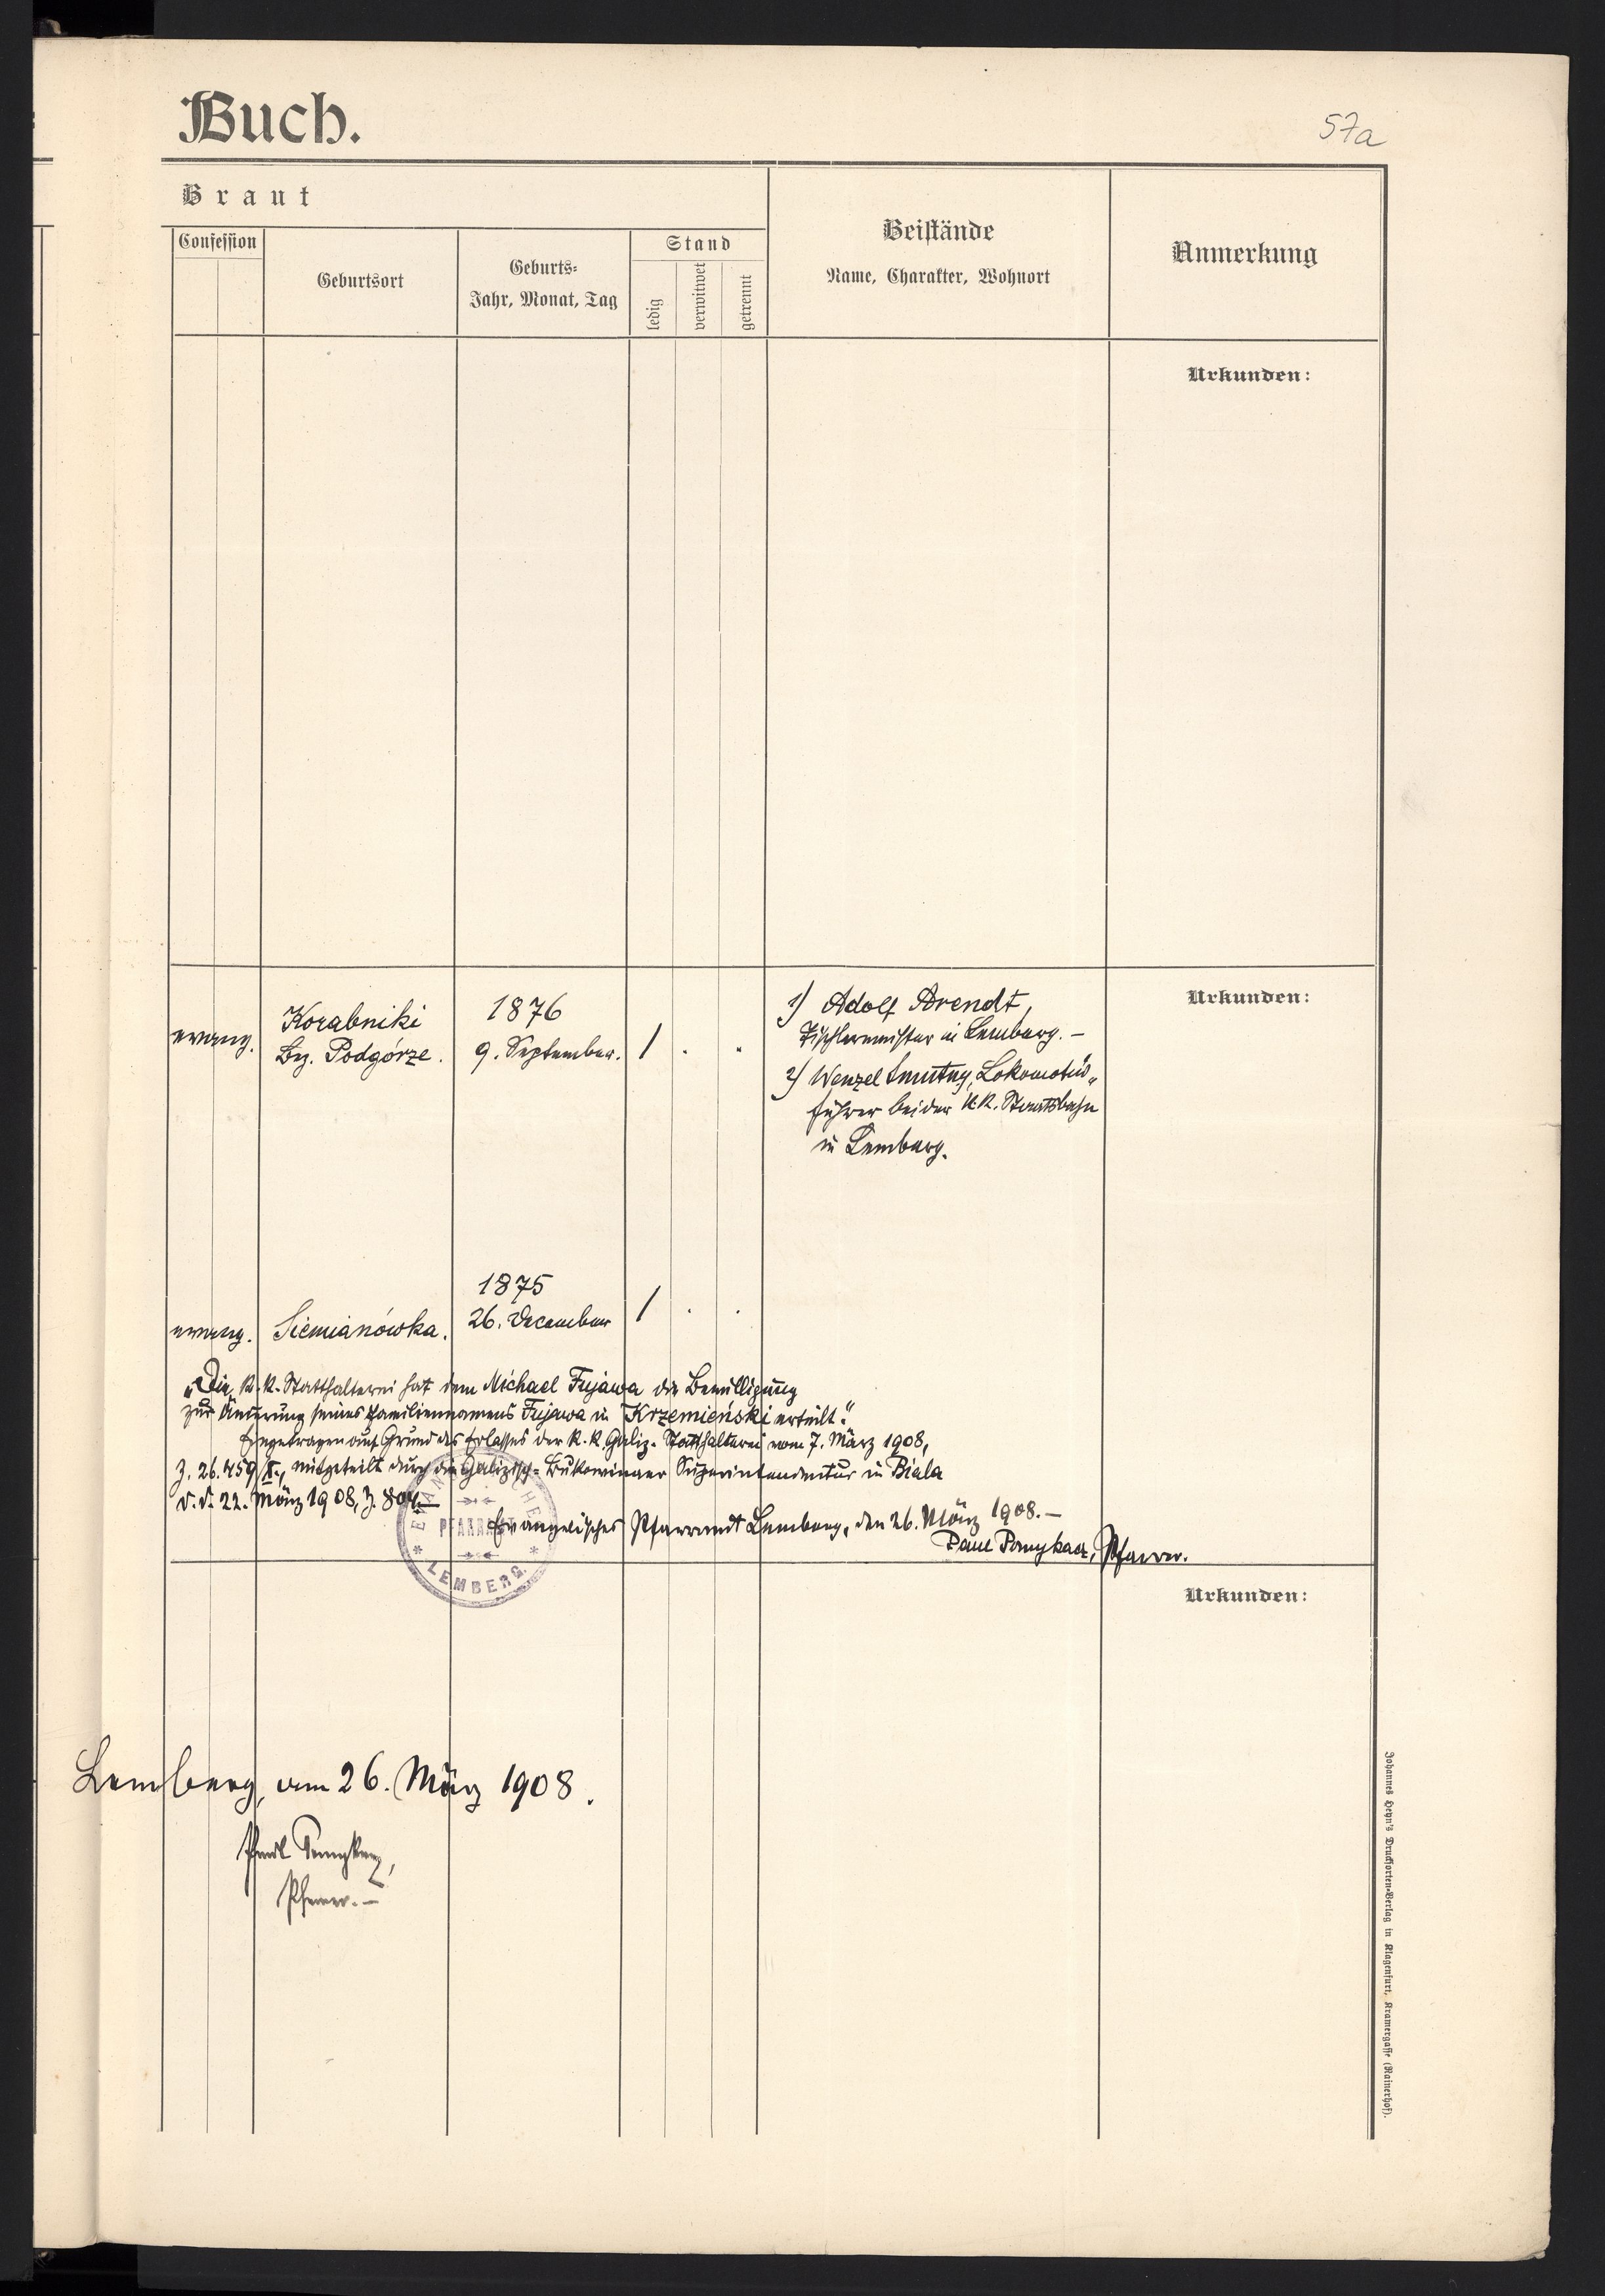 Buch.
57a
Braut
Confession
Geburtsort
Geburts-
Jahr, Monat, Tag
Stand
ledig
verwitwet
getrennt
Beistände
Name, Charakter, Wohnort
Anmerkung
Urkunden:
evang.
Korabniki
Bez. Podgórze.
1876
9. September.
/ . .
1) Adolf Arendt,
Tischlermeister in Lemberg. –
2) Wenzel Smutny, Lokomotiv„
führer bei der k.k. Staatsbahn
in Lemberg.
Urkunden:
evang.
Siemianówka.
1875
26. December
/ . .
„Die k.k. Statthalterei hat dem Michael Fujawa die Bewilligung
zur Änderung seines Familiennamens Fujawa in Krzemieński erteilt.“
Eingetragen auf Grund des Erlasses der k.k. Galiz. Statthalterei vom 7. März 1908,
Z. 26.459/X., mitgeteilt durch die Galizisch-Bukowinaer Superintendentur in Biala
v. d. 22. März 1908, Z. 804.
Evangelisches Pfarramt Lemberg, den 26. März 1908. –
Pfarrer.
PFARRAMT
LEMBERG.
Urkunden:
Lemberg, am 26. März 1908.
Pfarrer. –
Johannes Heyn's Drucksorten-Verlag in Klagenfurt, Kramergasse (Rainerhof).